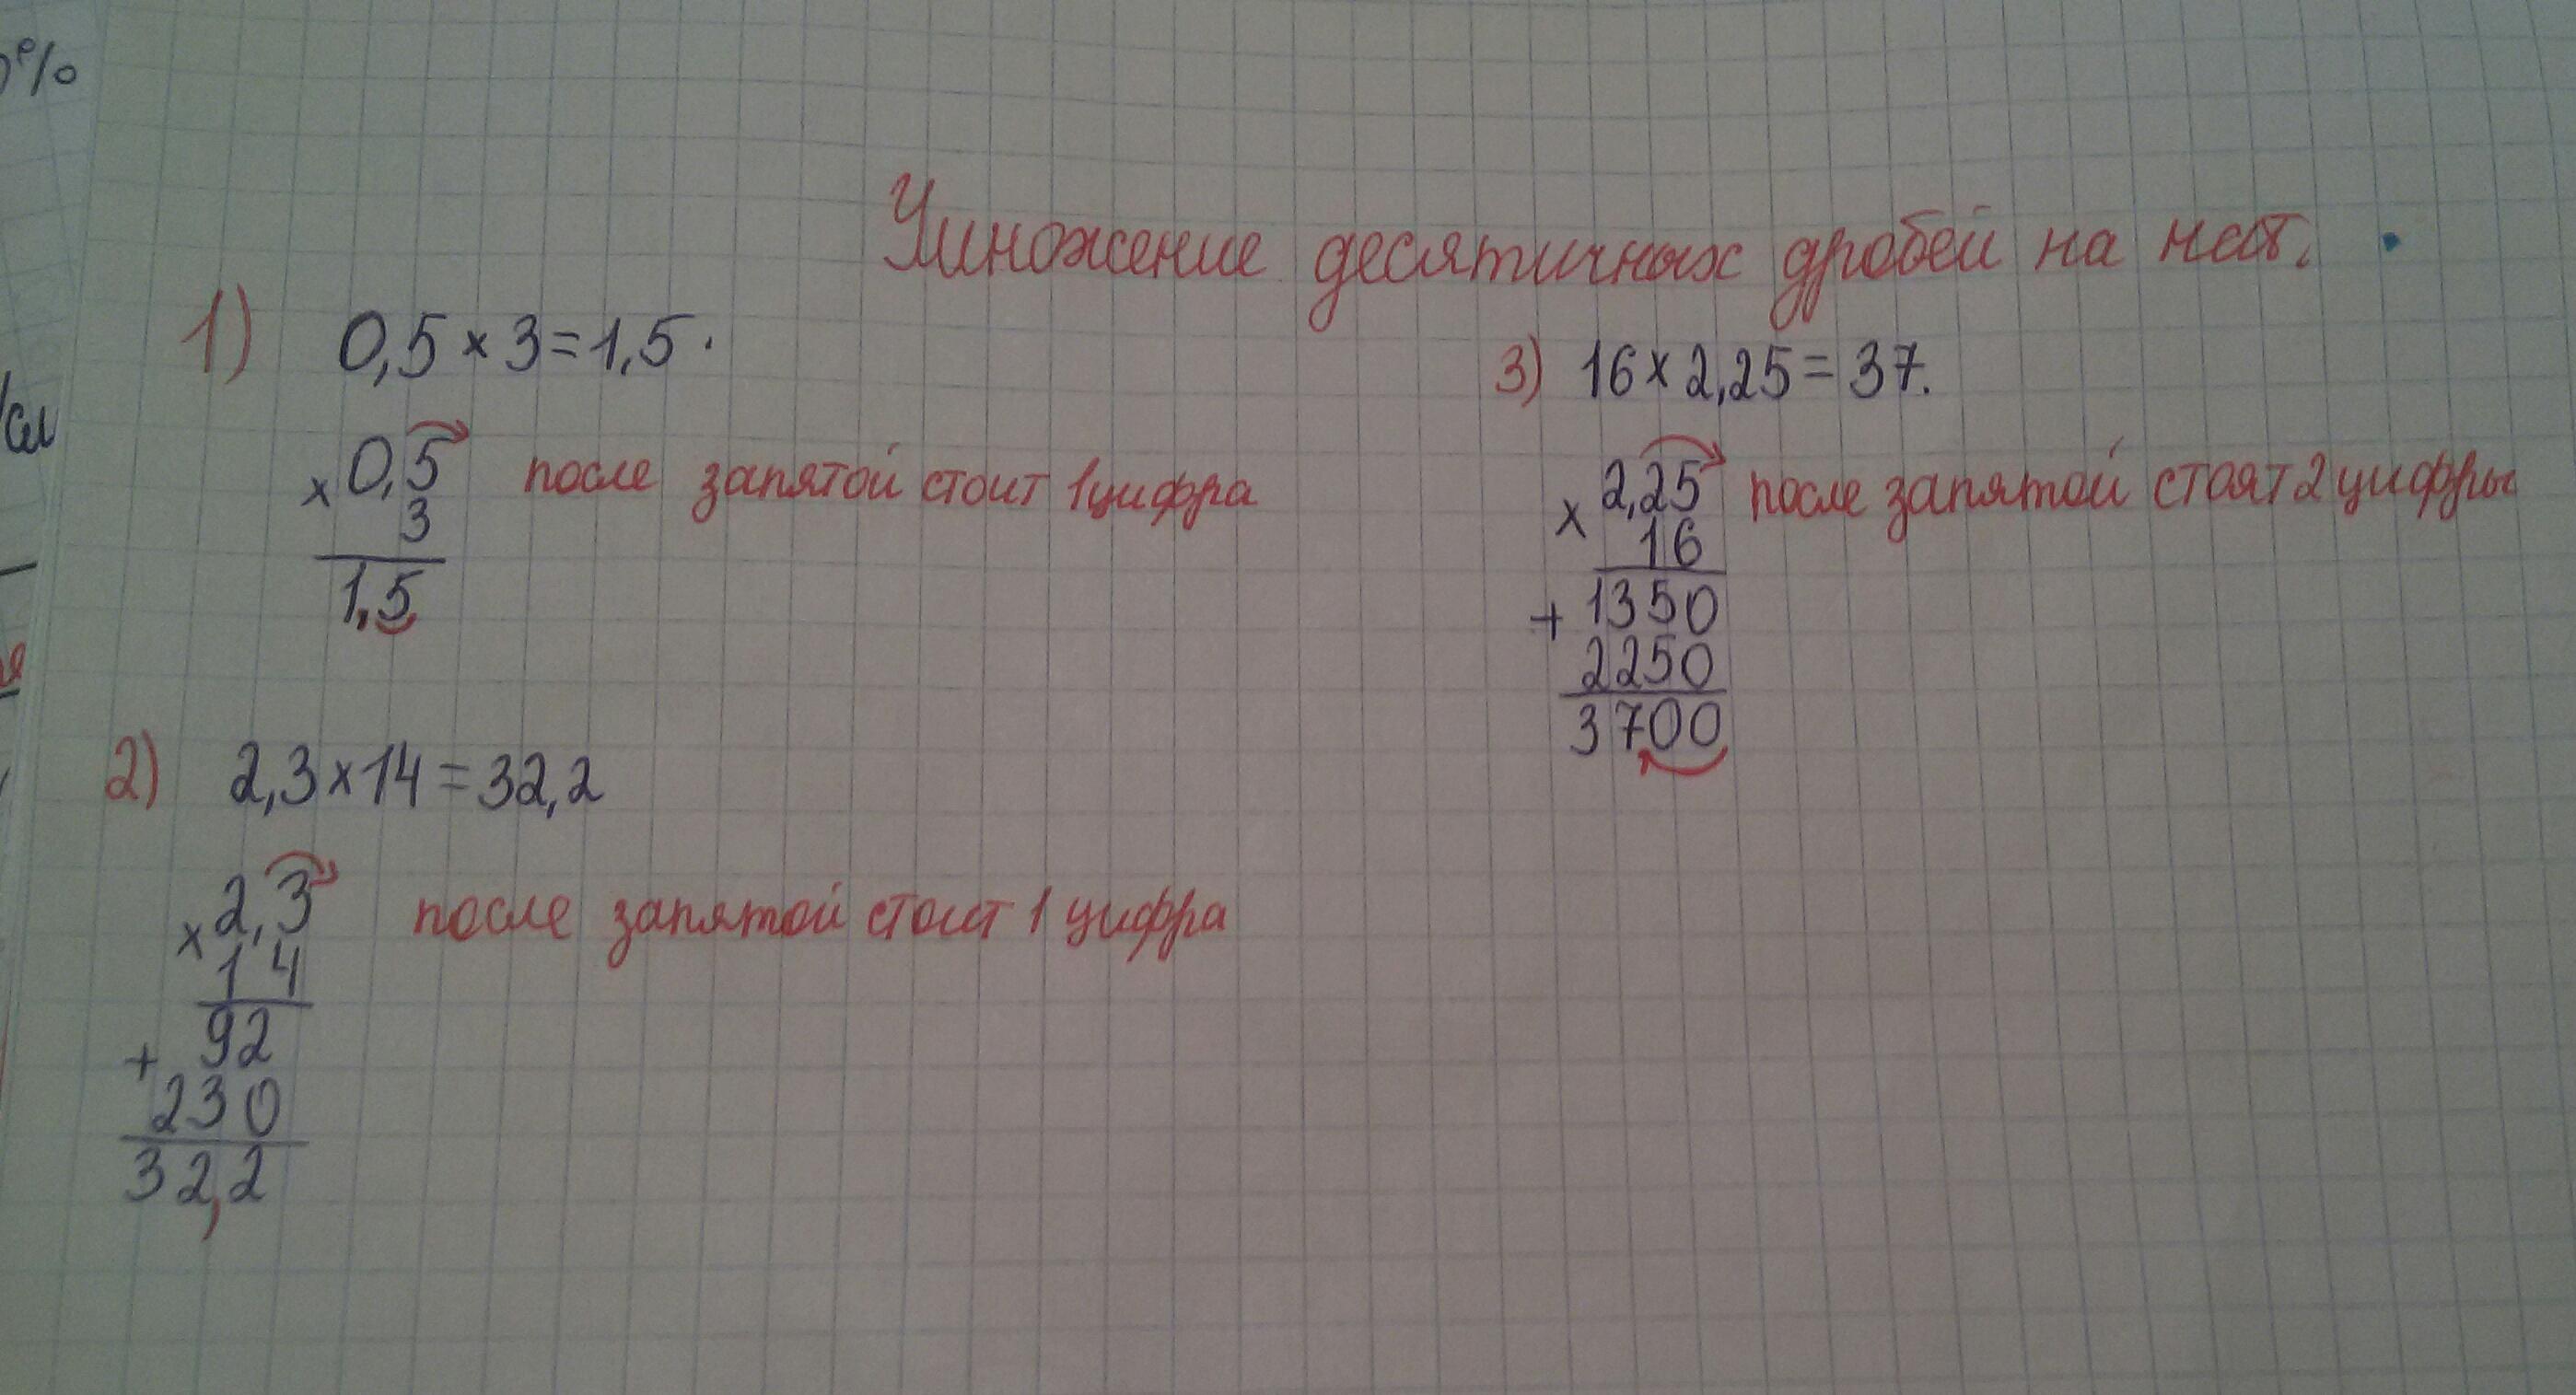 Умножение десятичных дробей на нат.
1) 0,5 × 3 = 1,5.
× 0,5 после запятой стоит 1 цифра
3
1,5
2) 2,3 × 14 = 32,2
× 2,3 после запятой стоит 1 цифра
14
+ 92
230
32,2
3) 16 × 2,25 = 37.
× 2,25 после запятой стоят 2 цифры
16
+ 1350
2250
3700
%
/см
я